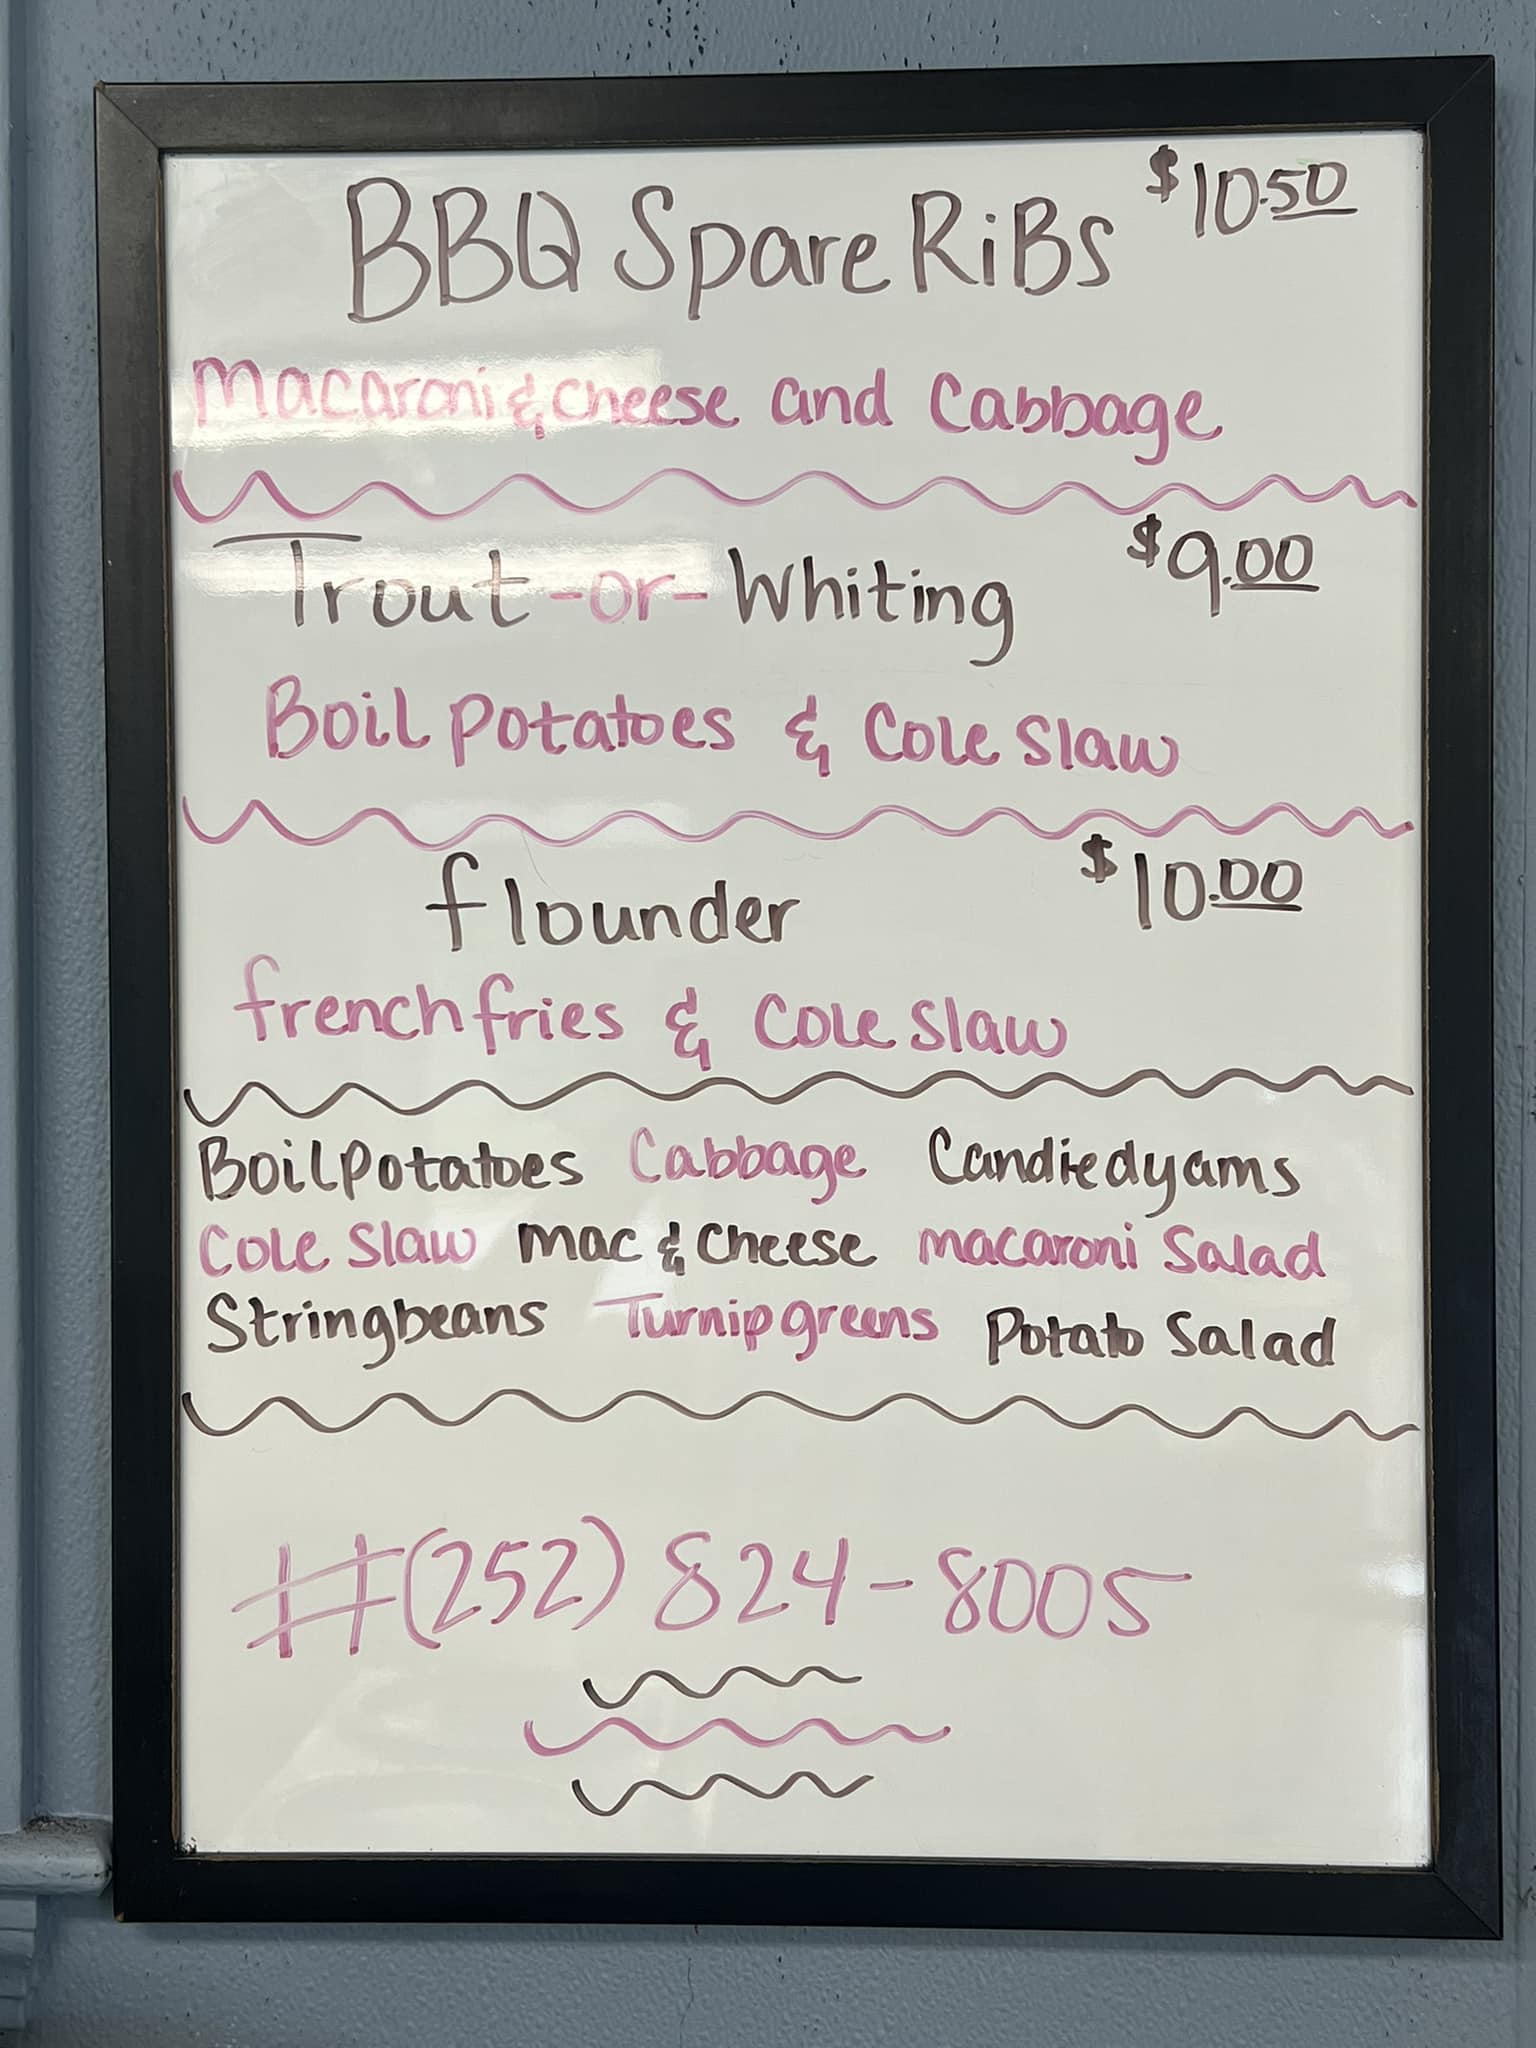 BBQ Spare RiBs $10.50
Macaroni & Cheese and Cabbage
Trout -or- Whiting $9.00
Boil Potatoes & Cole Slaw
flounder $10.00
french fries & Cole Slaw
Boil Potatoes Cabbage Candied yams
Cole Slaw Mac & Cheese Macaroni Salad
String beans Turnip greens Potato Salad
#(252) 824-8005